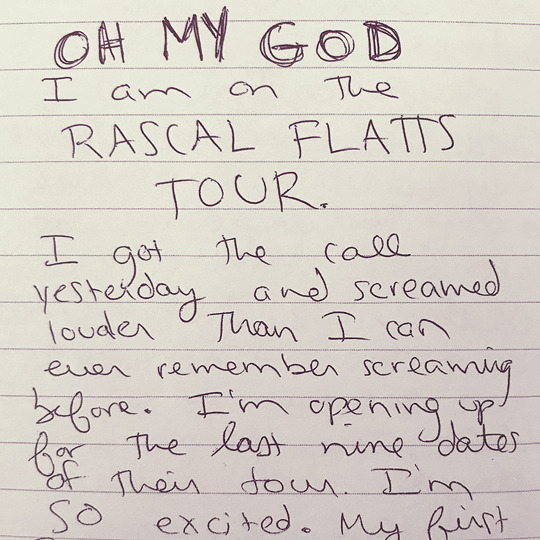 OH MY GOD
I am on the
RASCAL FLATTS
TOUR.
I got the call
yesterday and screamed
louder than I can
ever remember screaming
before. I'm opening up
for the last nine dates
of their tour. I'm
SO excited. My first